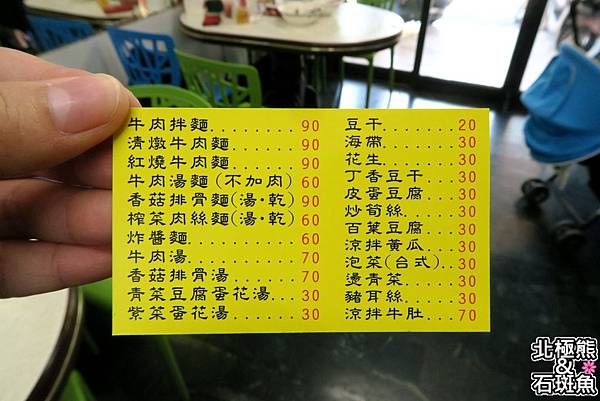 牛肉拌麵........90
清燉牛肉麵......90
紅燒牛肉麵......90
牛肉湯麵(不加肉)60
香菇排骨麵(湯·乾)90
榨菜肉絲麵(湯·乾)60
炸醬麵..........60
牛肉湯..........70
香菇排骨湯......70
青菜豆腐蛋花湯...30
紫菜蛋花湯......30
豆干.......20
海帶.......30
花生.......30
丁香豆干...30
皮蛋豆腐...30
炒筍絲.....30
百葉豆腐...30
涼拌黃瓜...30
泡菜(台式)..30
燙青菜.....30
豬耳絲.....30
涼拌牛肚...70
北極熊
&
石斑魚